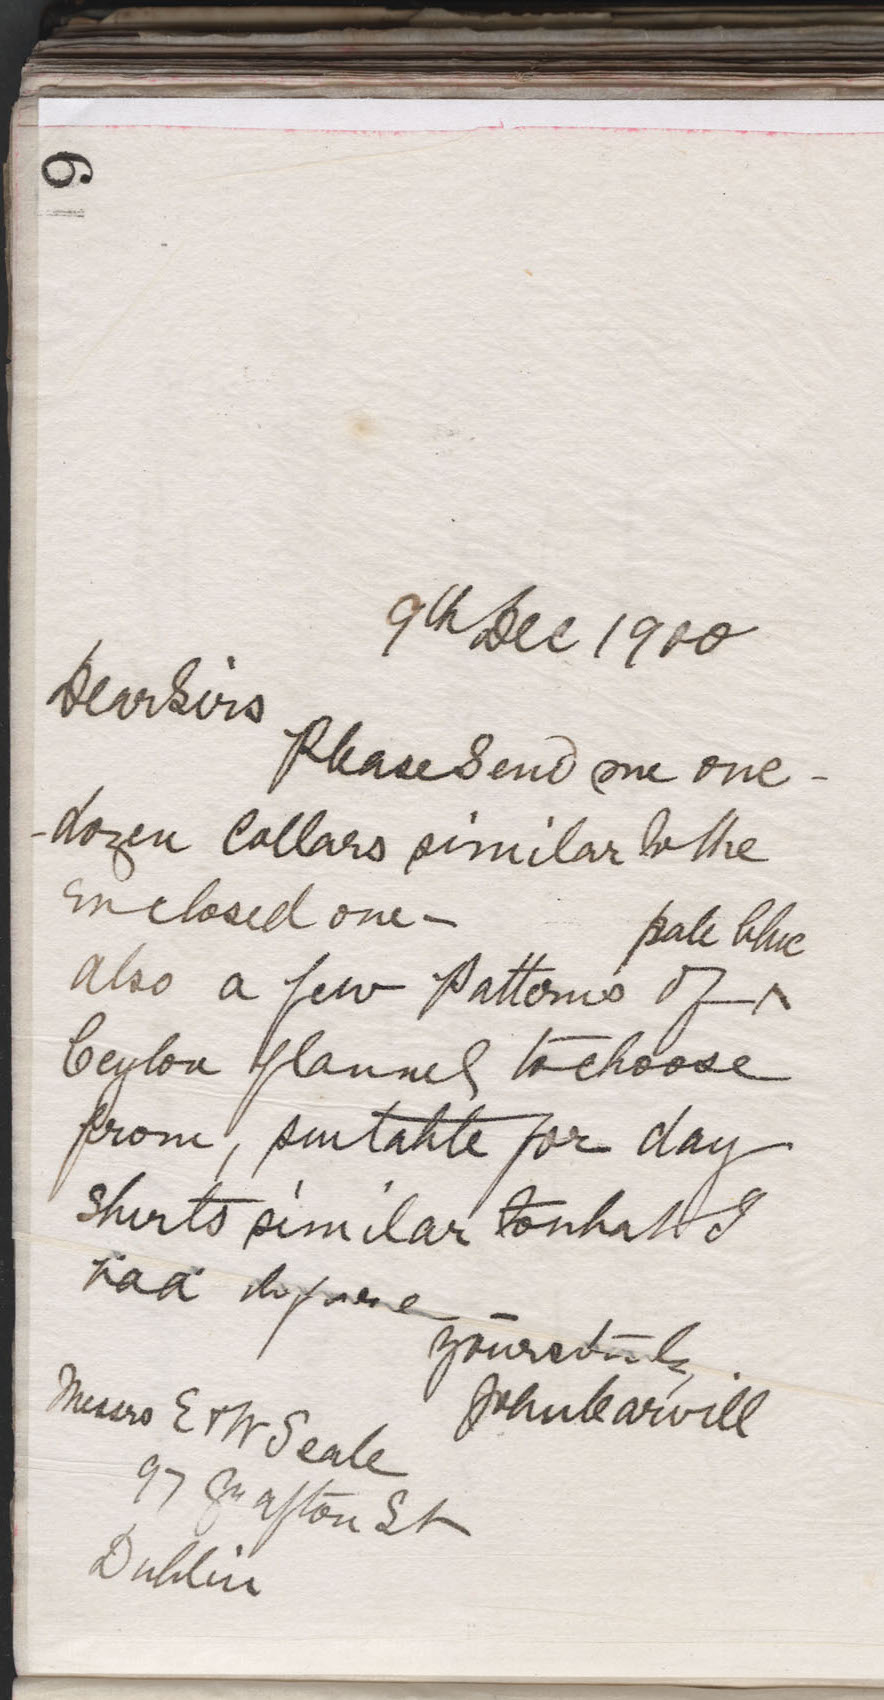 6
9th Dec 1900
Dear Sirs
Please Send me one -
- dozen Collars similar to the
Enclosed one -
pale blue
also a few Patterns of ^
Ceylon flannel to choose
from, suitable for day
shirts similar to what I
had before
yours truly
John Carvill
Messrs E & W Seale
97 Grafton St
Dublin